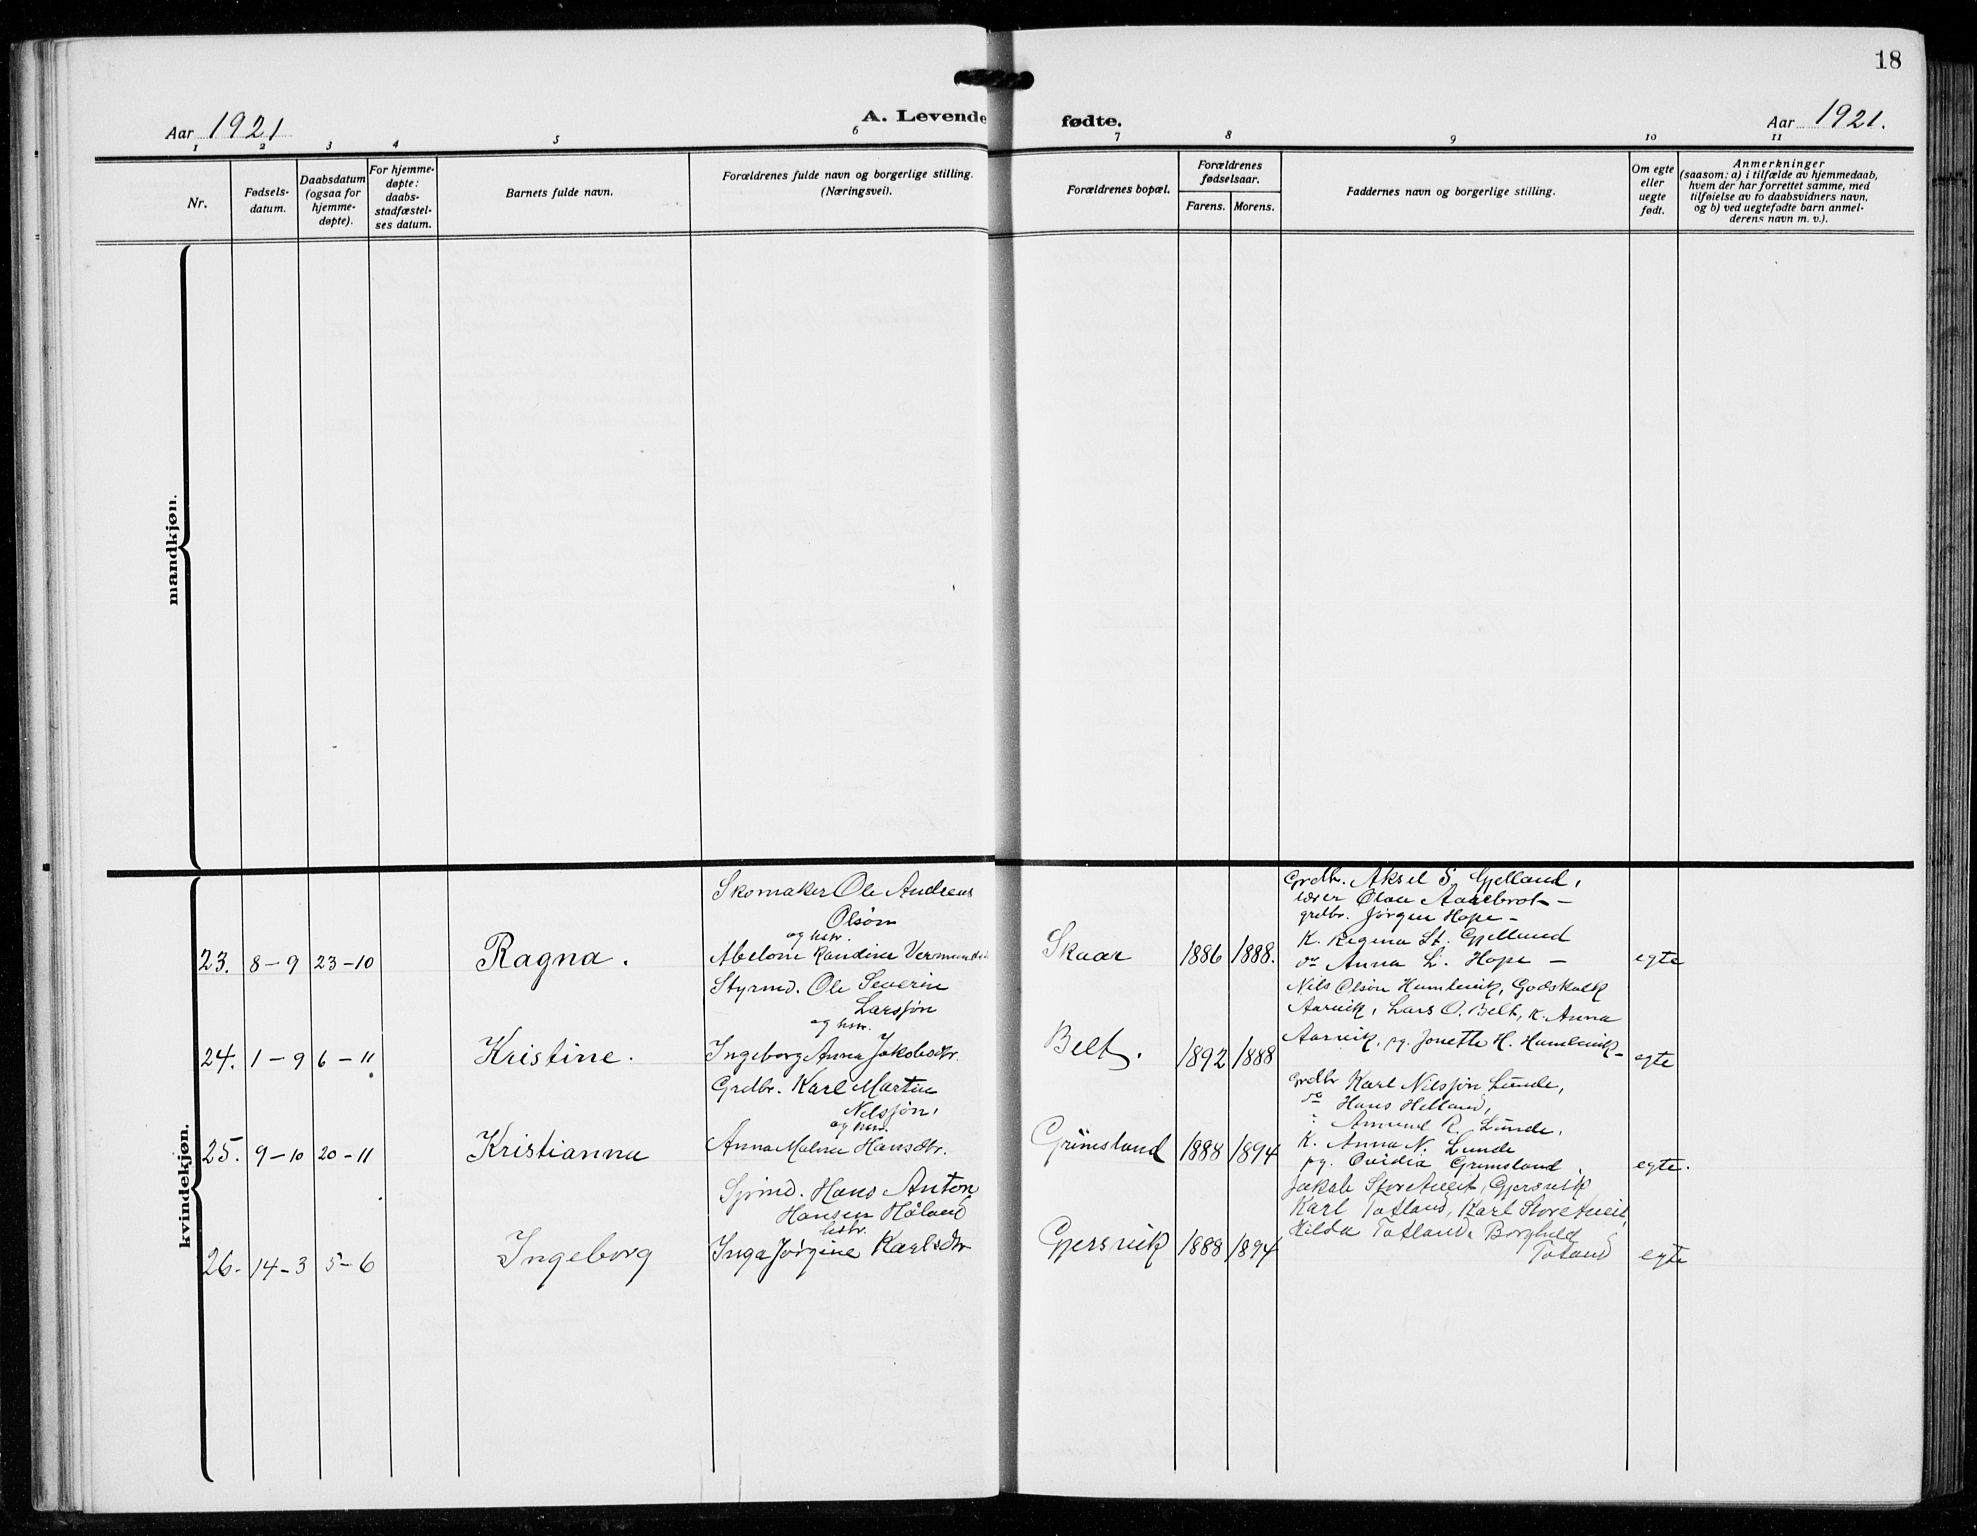 18
Aar 1921
A. Levende fødte.
Aar 1921.
1 2 3 4 5 6 7 8 9 10 11
Nr.
Fødsels-
datum.
Daabsdatum
(ogsaa for
hjemme-
døpte).
For hjemme-
døpte:
daabs-
stadfæstel-
ses datum.
Barnets fulde navn.
Forældrenes fulde navn og borgerlige stilling.
(Næringsvei).
Forældrenes bopæl.
Forældrenes
fødselsaar.
Farens. Morens.
Faddernes navn og borgerlige stilling.
Om egte
eller
uegte
født.
Anmerkninger
(saasom: a) i tilfælde av hjemmedaab,
hvem der har forrettet samme, med
tilføielse av to daabsvidners navn,
og b) ved uegtefødte barn anmel-
derens navn m. v.).
mandkjøn.
kvindekjøn.
23. 8-9 23-10 Ragna.
Skomaker Ole Andreas
Olsøn
og hstr.
Abelone Randine
Skaar 1886 1888.
Grdbr. Aksel S. Gjelland,
Olau Aarebrot -
grdbr. Jørgen Hope -
K. Regina St. Gjelland
do Anna L. Hope -
egte
24. 1-9 6-11 Kristine.
Styrmd. Ole Severin
Larssøn
og hstr.
Ingeborg Anna Jakobsdtr.
Belt. 1892 1888
Nils Olsøn Humlevik, Godskalk
Aarvik, Lars O. Belt, K. Anna
Aarvik, pg. Jonette H. Humlevik -
egte
25. 9-10 20-11 Kristianna
Grdbr. Karl Martin
Nilssøn,
og hstr.
Anna Malene Hansdtr.
Grimsland 1888 1894
Grdbr Karl Nilssøn Lunde,
do Hans Helland,
Amund R. Lunde,
K. Anna N. Lunde
pg. Ovidia Grimsland.
egte.
26. 14-3 5-6 Ingeborg
Sjømd. Hans Anton
Hansen Håland
hstr.
Inga Jørgine Karlsdtr
Gjersvik 1888 1894
Jakob Storetveit, Gjersvik
Karl Totland, Karl Storetveit,
Hilda Totland, Borghild
Totland
egte